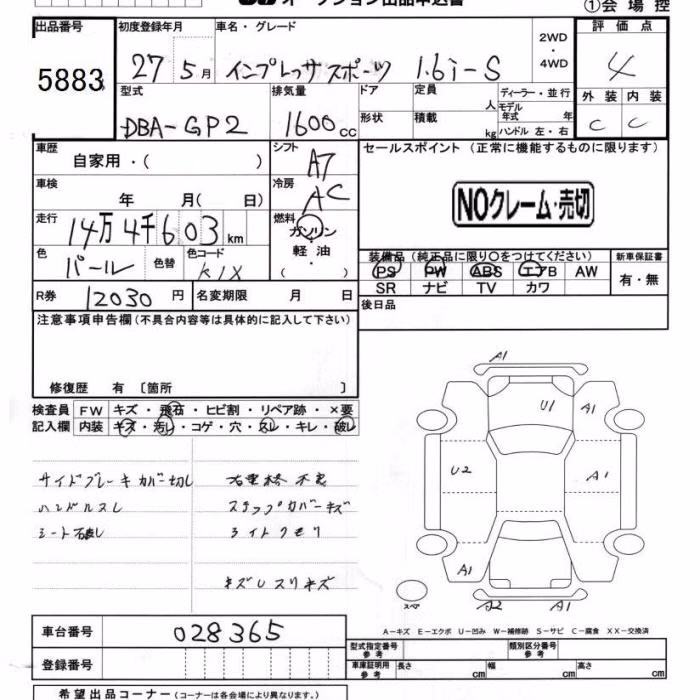 オークション出品申込書
①会場控
出品番号
5883
初度登録年月
27 5月
車名・グレード
インプレッサスポーツ 1.6i-S
2WD
・
4WD
評価点
4
型式
DBA-GP2
排気量
1600cc
ドア
形状
定員
人
積載
kg
ディーラー・並行
モデル年式 年
ハンドル 左・右
外装 内装
C C
車歴
自家用・( )
シフト
A7
セールスポイント (正常に機能するものに限ります)
車検
年 月( 日)
冷房
AC
NOクレーム・売切
走行
14万4千603km
燃料
ガソリン
軽油
・
( )
色
パール
色替
色コード
K1X
装備品 (純正品に限り○をつけてください)
新車保証書
PS PW ABS エアB AW
有・無
SR ナビ TV カワ
R券
12030円
名変期限 月 日
後日品
注意事項申告欄(不具合内容等は具体的に記入して下さい)
修復歴 有 〔箇所 〕
検査員 FW キズ・飛石・ヒビ割・リペア跡・×要
記入欄 内装 キズ・汚レ・コゲ・穴・スレ・キレ・破レ
サイドブレーキカバー切レ
ハンドルスレ
シート
不良
ステップカバーキズ
ライトクモリ
キズUスリキズ
A1
U1 A1
U2 A1
A1
スペア
A2 A1
A-キズ E-エクボ U-凹み W-補修跡 S-サビ C-腐食 XX-交換済
車台番号
028365
登録番号
型式指定番号
参考
類別区分番号
参考
車庫証明用
参考
長さ cm
幅 cm
高さ cm
希望出品コーナー (コーナーは各会場により異なります。)